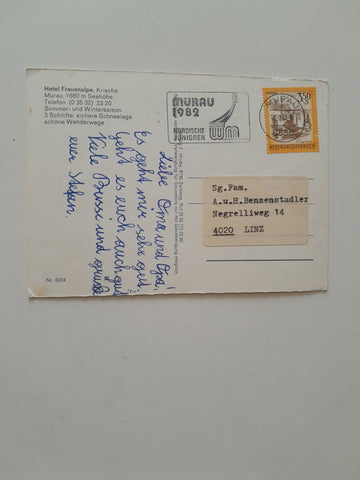 Hotel Frauenalpe, Krische
Murau, 1680 m Seehöhe
Telefon (0 35 32) 23 20
Sommer- und Wintersaison
3 Schilifte, sichere Schneelage
schöne Wanderwege
MURAU
1982
NORDISCHE
JUNIOREN
WM
3.50
REPUBLIK ÖSTERREICH
Liebe Oma und Opa!
Es geht mir sehr gut.
Geht es euch auch gut?
Viele Bussi und grüße
euer Stefan.
Sg.Fam.
A.u.H.Benzenstadler
Negrelliweg 14
4020 LINZ
Nr. 6234